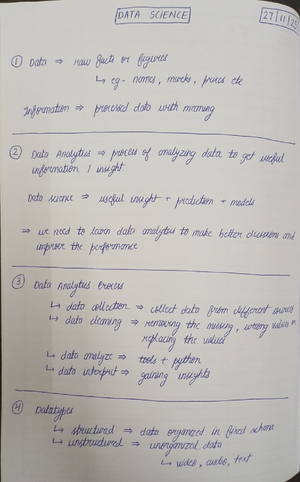 DATA SCIENCE
27/11/25
① Data ⇒ raw facts or figures
↳ eg - names, marks, prices etc
Information ⇒ processed data with meaning
② Data Analytics ⇒ process of analyzing data to get useful
information / insight.
Data science ⇒ useful insight + prediction + models
⇒ we need to learn data analytics to make better decisions and
improve the performance
③ Data Analytics Process
↳ data collection ⇒ collect data from different sources
↳ data cleaning ⇒ removing the missing, wrong values or
replacing the values
↳ data analyze ⇒ tools + python
↳ data interpret ⇒ gaining insights
④ Datatypes
↳ structured ⇒ data organized in fixed schema
↳ unstructured ⇒ unorganized data
↳ video, audio, text